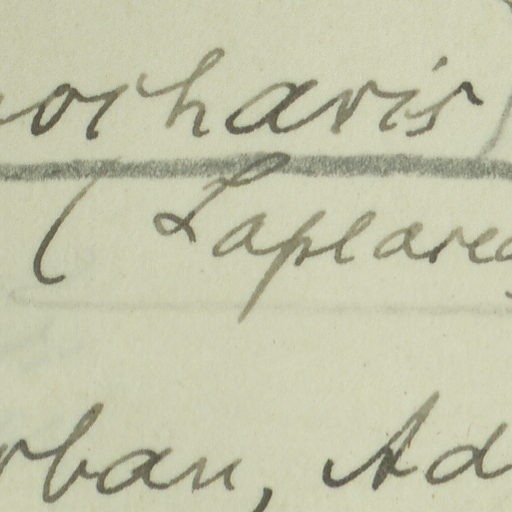 ocharis
( Laplarea
rban, Ad